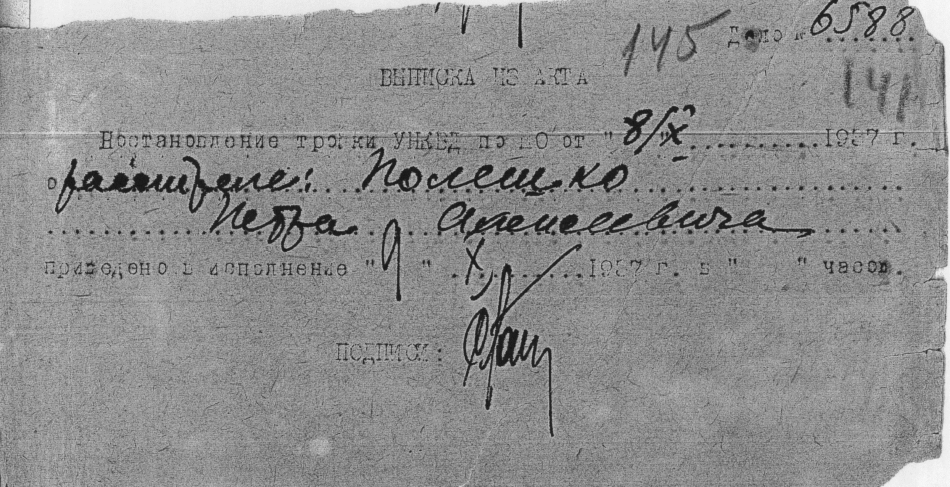 145 Дело № 6588
141
ВЫПИСКА ИЗ АКТА
Постановление тройки УНКВД по МО от "8/X" 1937 г.
о расстреле: Полещко
Петра Алексеевича
приведено в исполнение "9" X 1937 г. в " " часов.
ПОДПИСИ: